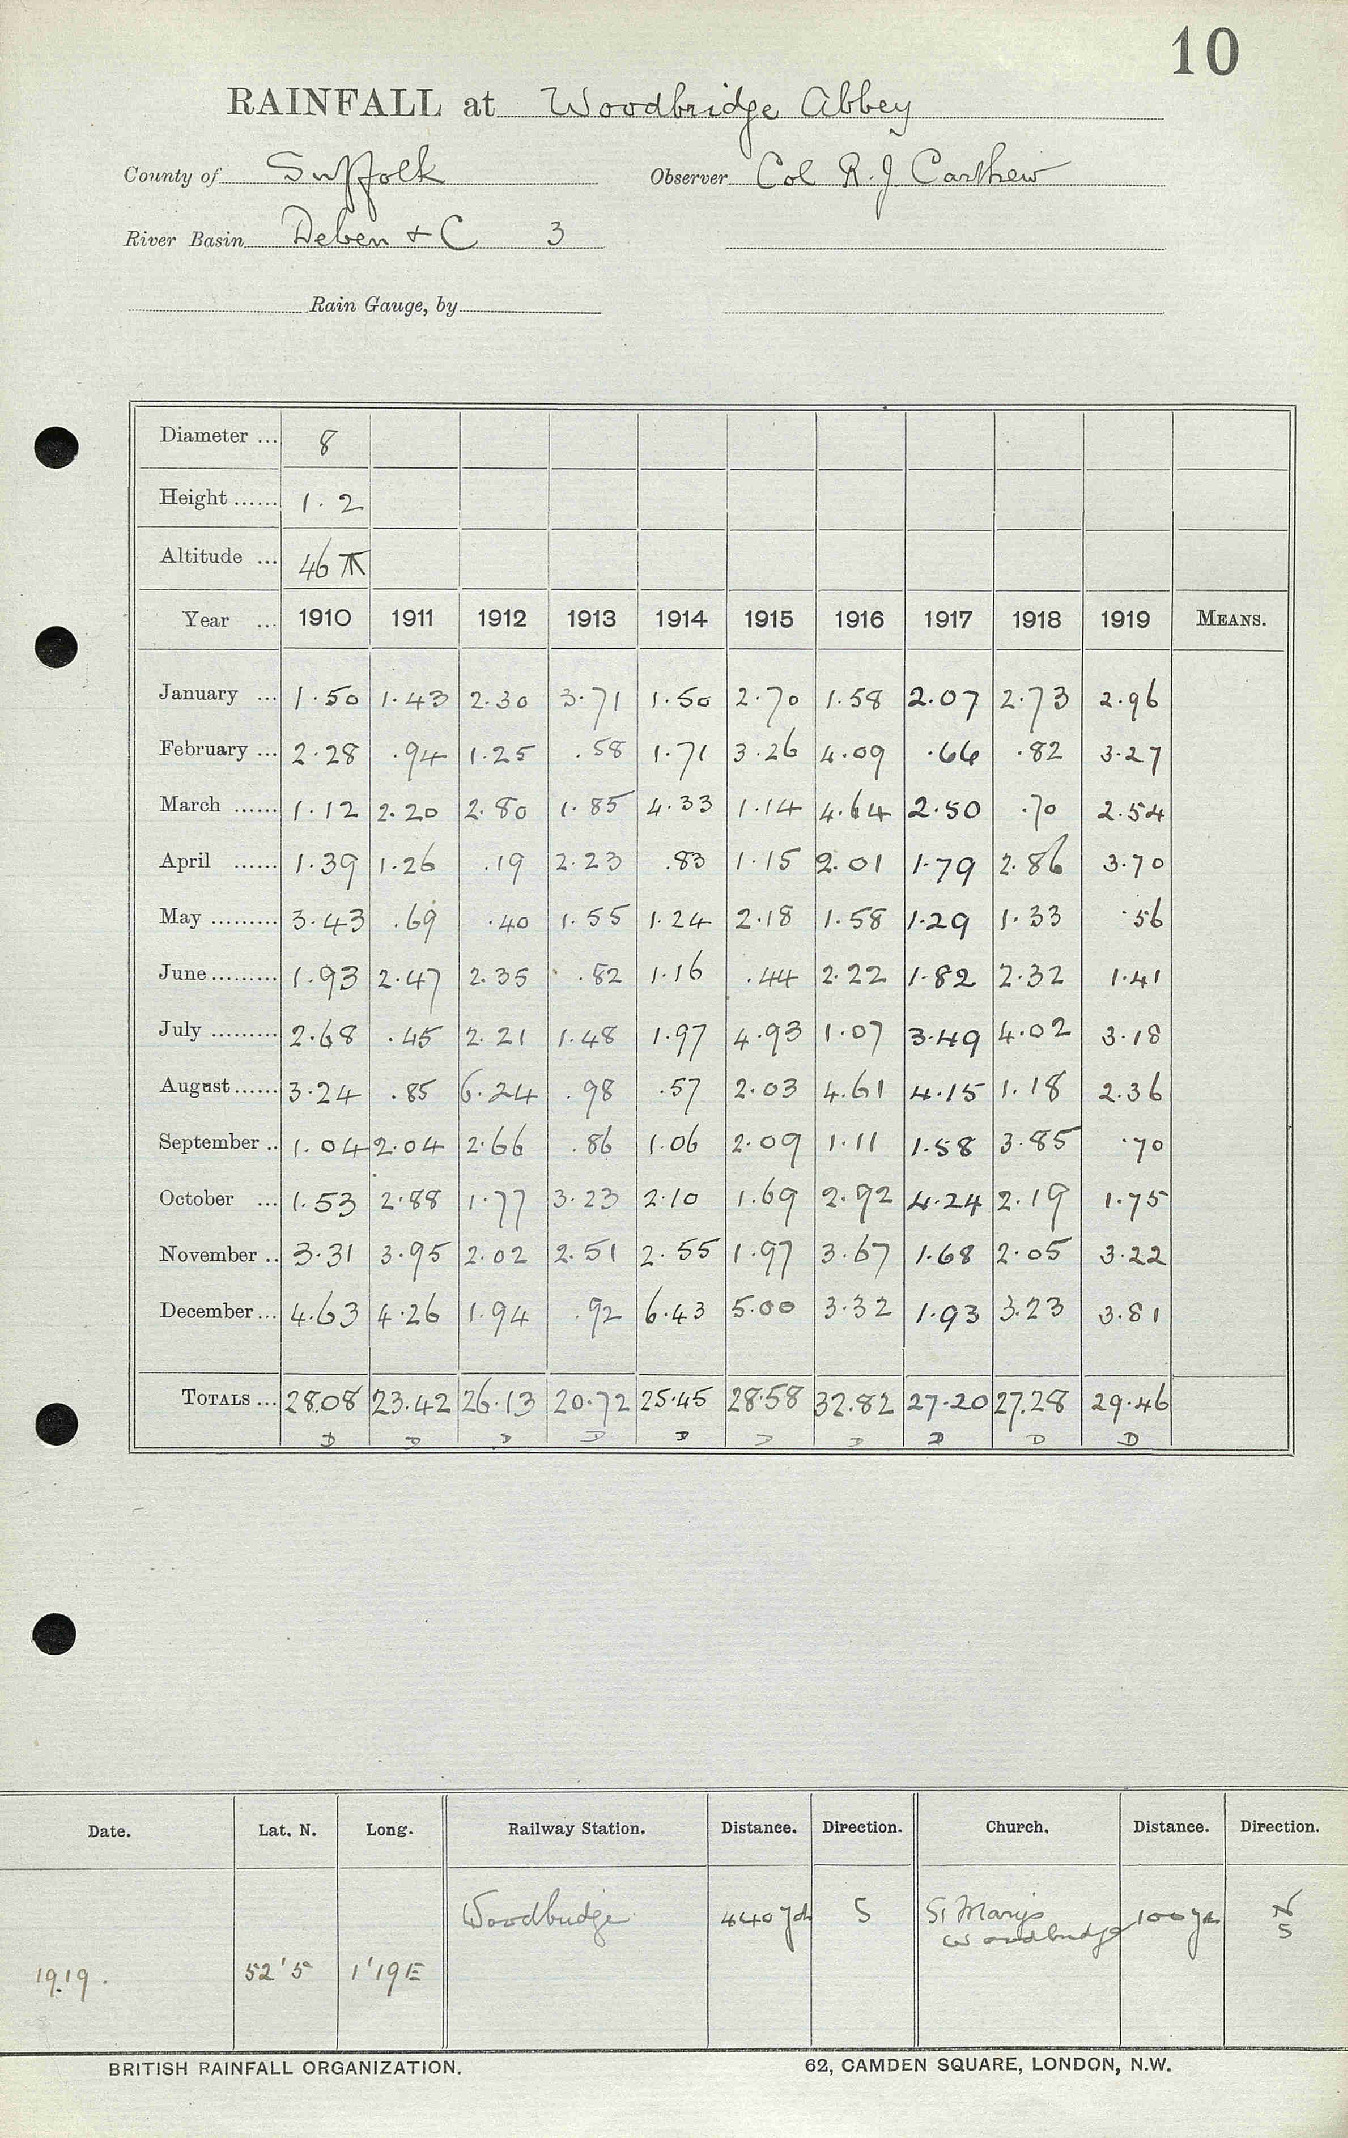 10
RAINFALL at Woodbridge Abbey
County of Suffolk Observer Col R. J Carthew
River Basin Deben & C 3
Rain Gauge, by
Diameter ... 8
Height ...... 1.2
Altitude ... 46
Year ... 1910 1911 1912 1913 1914 1915 1916 1917 1918 1919 MEANS.
January ... 1.50 1.43 2.30 3.71 1.50 2.70 1.58 2.07 2.73 2.96
February ... 2.28 .94 1.25 .58 1.71 3.26 4.09 .66 .82 3.27
March ...... 1.12 2.20 2.80 1.85 4.33 1.14 4.64 2.50 .70 2.54
April ...... 1.39 1.26 .19 2.23 .83 1.15 2.01 1.79 2.86 3.70
May ......... 3.43 .69 .40 1.55 1.24 2.18 1.58 1.29 1.33 .56
June ......... 1.93 2.47 2.35 .82 1.16 .44 2.22 1.82 2.32 1.41
July ......... 2.68 .45 2.21 1.48 1.97 4.93 1.07 3.49 4.02 3.18
August ...... 3.24 .85 6.24 .98 .57 2.03 4.61 4.15 1.18 2.36
September .. 1.04 2.04 2.66 .86 1.06 2.09 1.11 1.58 3.85 .70
October ... 1.53 2.88 1.77 3.23 2.10 1.69 2.92 4.24 2.19 1.75
November .. 3.31 3.95 2.02 2.51 2.55 1.97 3.67 1.68 2.05 3.22
December ... 4.63 4.26 1.94 .92 6.43 5.00 3.32 1.93 3.23 3.81
TOTALS ... 28.08 23.42 26.13 20.72 25.45 28.58 32.82 27.20 27.28 29.46
D D D D D D D D D D
Date. Lat. N. Long. Railway Station. Distance. Direction. Church. Distance. Direction.
Woodbridge 440 yds S St Marys Woodbridge 100 yds N S
1919. 52'5 1'19E
BRITISH RAINFALL ORGANIZATION. 62, CAMDEN SQUARE, LONDON, N.W.